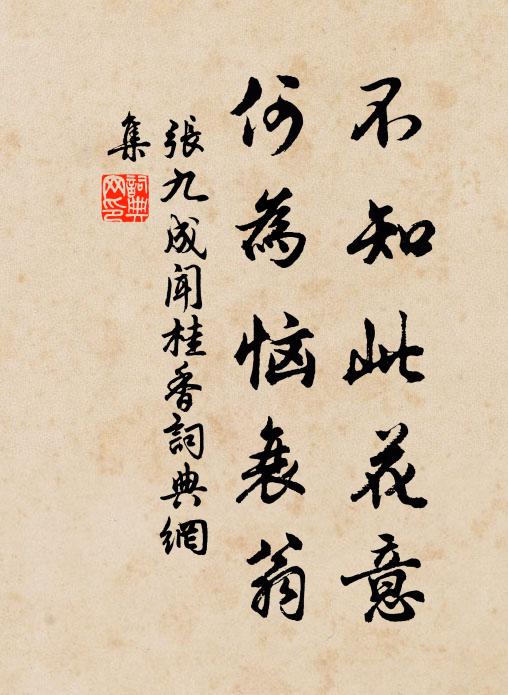 不知此花意
何為恼衰翁
張九成闻桂香詞典網
集
詞典網印